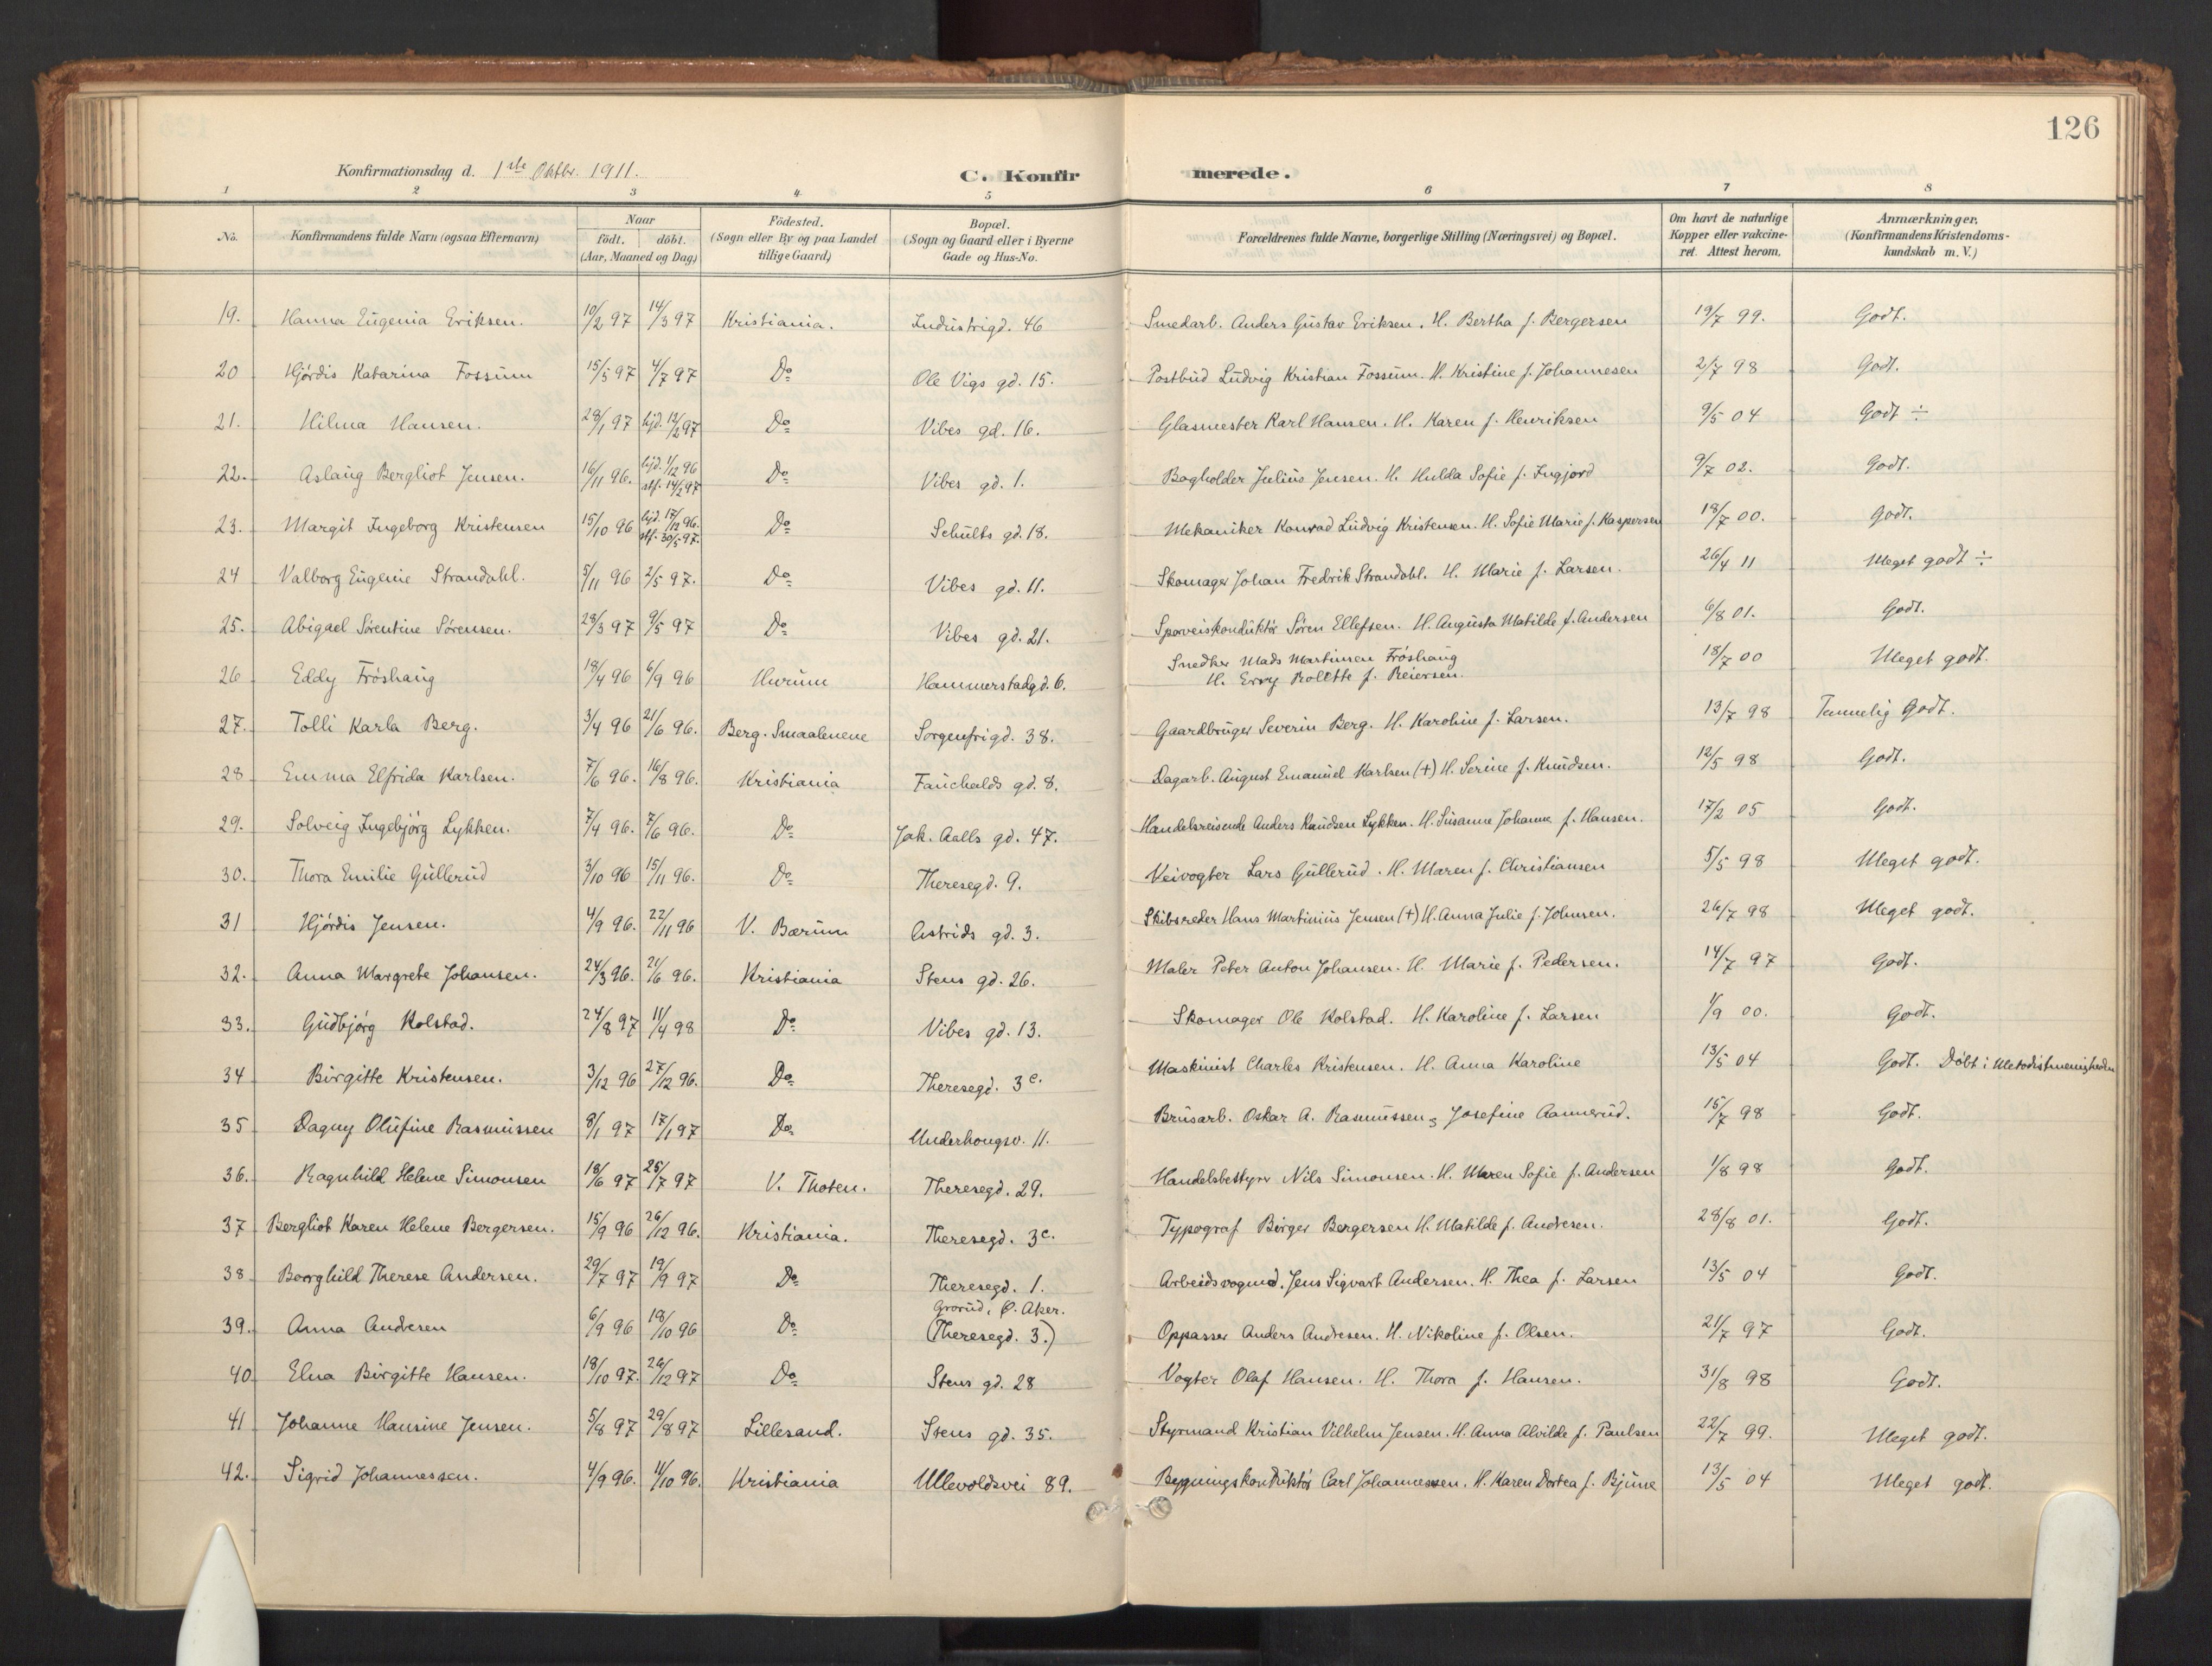 126
Konfirmationsdag d. 1ste Oktbr. 1911.
C. Konfirmerede.
1 2 3 4 5 6 7 8
No.
Konfirmandens fulde Navn (ogsaa Efternavn)
Naar
födt. döbt.
(Aar, Maaned og Dag)
Födested.
(Sogn eller By og paa Landet
tillige Gaard)
Bopæl.
(Sogn og Gaard eller i Byerne
Gade og Hus-No.
Forældrenes fulde Navne, borgerlige Stilling (Næringsvei) og Bopæl.
Om havt de naturlige
Kopper eller vakcine-
ret. Attest herom.
Anmærkninger.
(Konfirmandens Kristendoms-
kundskab m.V.)
19. Hanna Eugenia Eriksen. 10/2 97 14/3 97 Kristiania. Industrigd. 46 Smedarb. Anders Gustav Eriksen. H. Bertha f. Bergersen 19/7 99. Godt.
20 Hjördis Katarina Fossum 15/5 97 4/7 97 Do Ole Vigs gd. 15. Postbud Ludvig Kristian Fossum. H. Kristine f. Johannesen 2/7 98 Godt.
21. Hilma Hansen. 28/1 97 hjd. 12/2 97 Do Vibes gd. 16. Glasmester Karl Hansen. H. Karen f. Henriksen 9/5 04 Godt ÷
22. Aslaug Bergliot Jensen. 16/11 96. hjd. 1/12 96 stf. 14/2 97 Do Vibes gd. 1. Bogholder Julius Jensen. H. Hulda Sofie f. Ingjord 9/7 02. Godt.
23. Margit Ingeborg Kristensen 15/10 96 hjd. 17/12 96. stf. 30/5 97. Do Schults gd. 18. Mekaniker Konrad Ludvig Kristensen. H. Sofie Marie f. Kaspersen 18/7 00. Godt.
24 Valborg Eugenie Strandahl. 5/11 96 2/5 97. Do Vibes gd. 11. Skomager Johan Fredrik Strandahl. H. Marie f. Larsen. 26/4 11 Meget godt ÷
25. Abigael Sörentine Sörensen. 28/3 97 9/5 97 Do Vibes gd. 21. Sporveiskonduktör Sören Ellefsen. H. Augusta Matilde f. Andersen 6/8 01. Godt.
26 Eddy Fröshaug 18/4 96 6/9 96 Hurum Hammerstadgd. 6. Snedker Mads Martinsen Fröshaug
H. Ervy Rolette f. Reiersen. 18/7 00 Meget godt.
27. Tolli Karla Berg. 3/4 96 21/6 96. Berg. Smaalenene Sorgenfrigd. 38. Gaardbruger Severin Berg. H. Karoline f. Larsen. 13/7 98 Temmelig Godt.
28 Emma Elfrida Karlsen. 7/6 96. 16/8 96. Kristiania Fauchalds gd. 8. Dagarb. August Emanuel Karlsen (†) H. Serine f. Knudsen. 12/5 98 Godt.
29. Solveig Ingebjörg Lykken. 7/4 96. 7/6 96. Do Jak. Aalls gd. 47. Handelsreisende Anders Knudsen Lykken. H. Susanne Johanne f. Hansen. 17/2 05 Godt.
30. Thora Emilie Gullerud 3/10 96 15/11 96. Do Theresegd. 9. Veivogter Lars Gullerud. H. Maren f. Christiansen 5/5 98 Meget godt.
31 Hjördis Jensen. 4/9 96. 22/11 96 V. Bærum Astrids gd. 3. Skibsreder Hans Martinius Jensen (†) H. Anna Julie f. Johnsen. 26/7 98 Meget godt.
32. Anna Margrete Johansen. 24/3 96. 21/6 96. Kristiania Stens gd. 26. Maler Peter Anton Johansen. H. Marie f. Pedersen. 14/7 97 Godt.
33. Gudbjörg Kolstad. 24/8 97 11/4 98 Do Vibes gd. 13. Skomager Ole Kolstad. H. Karoline f. Larsen 1/9 00. Godt.
34 Birgitte Kristensen. 3/12 96 27/12 96. Do Theresegd. 3c. Maskinist Charles Kristensen. H. Anna Karoline 13/5 04 Godt. Döbt i Metodistmenigheden
35 Dagny Olufine Rasmussen 8/1 97 17/1 97 Do Underhougsv. 11. Brusarb. Oskar A. Rasmussen, Josefine Aannerud. 15/7 98 Godt.
36. Ragnhild Helene Simonsen 18/6 97 25/7 97 V. Thoten. Theresegd. 29. Handelsbestyrer Nils Simonsen. H. Maren Sofie f. Andersen 1/8 98 Godt.
37 Bergliot Karen Helene Bergersen. 15/9 96 26/12 96. Kristiania. Theresegd. 3c. Typograf Birger Bergersen H. Matilde f. Andresen. 28/8 01. Godt.
38 Borghild Therese Andersen. 29/7 97 19/9 97 Do Theresegd. 1. Arbeidsvogmd. Jens Sigvart Andersen. H. Thea f. Larsen 13/5 04 Godt.
39. Anna Andresen 6/9 96 18/10 96 Do Grorud, Ø. Aker.
(Theresegd. 3.) Oppasser Anders Andresen. H. Nikoline f. Olsen. 21/7 97 Godt.
40 Elna Birgitte Hansen. 18/10 97. 26/12 97 Do Stens gd. 28 Vogter Olaf Hansen. H. Thora f. Hansen. 31/8 98 Godt.
41 Johanne Hansine Jensen. 5/8 97 29/8 97 Lillesand. Stens gd. 35. Styrmand Kristian Vilhelm Jensen. H. Anna Alvilde f. Paulsen 22/7 99. Meget godt.
42. Sigrid Johannessen. 4/9 96. 4/10 96. Kristiania Ullevoldsvei 89. Bygningskonduktör Carl Johannessen. H. Karen Dortea f. Bjune 13/5 04 Meget godt.